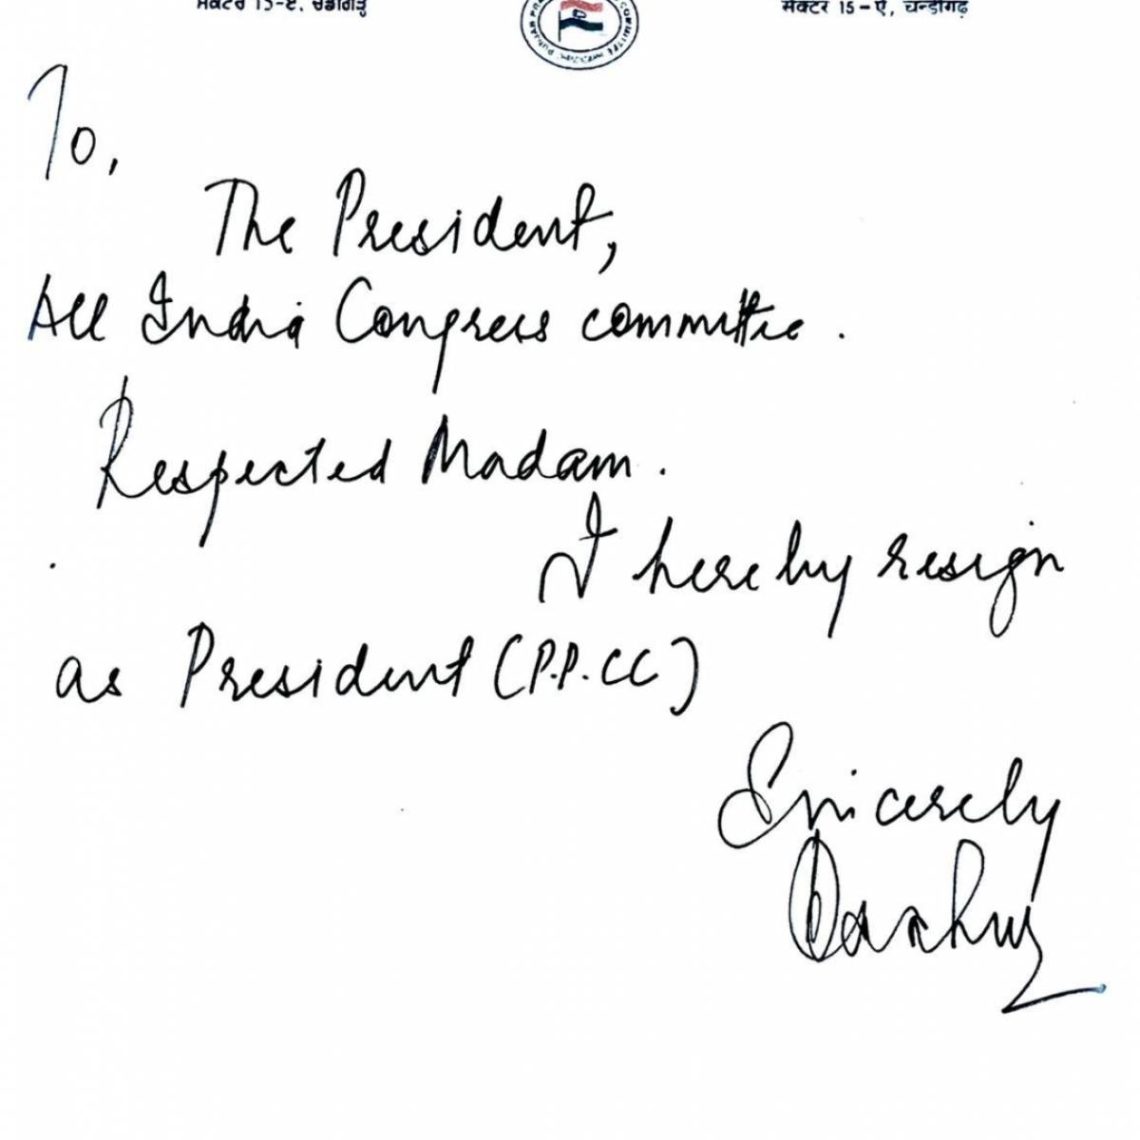 ਸੈਕਟਰ 15-ਏ, ਚੰਡੀਗੜ੍ਹ
सैक्टर 15-ए, चन्डीगढ़
To,
The President,
All India Congress committee.
Respected Madam.
I hereby resign
as President (P.P.CC)
Sincerely